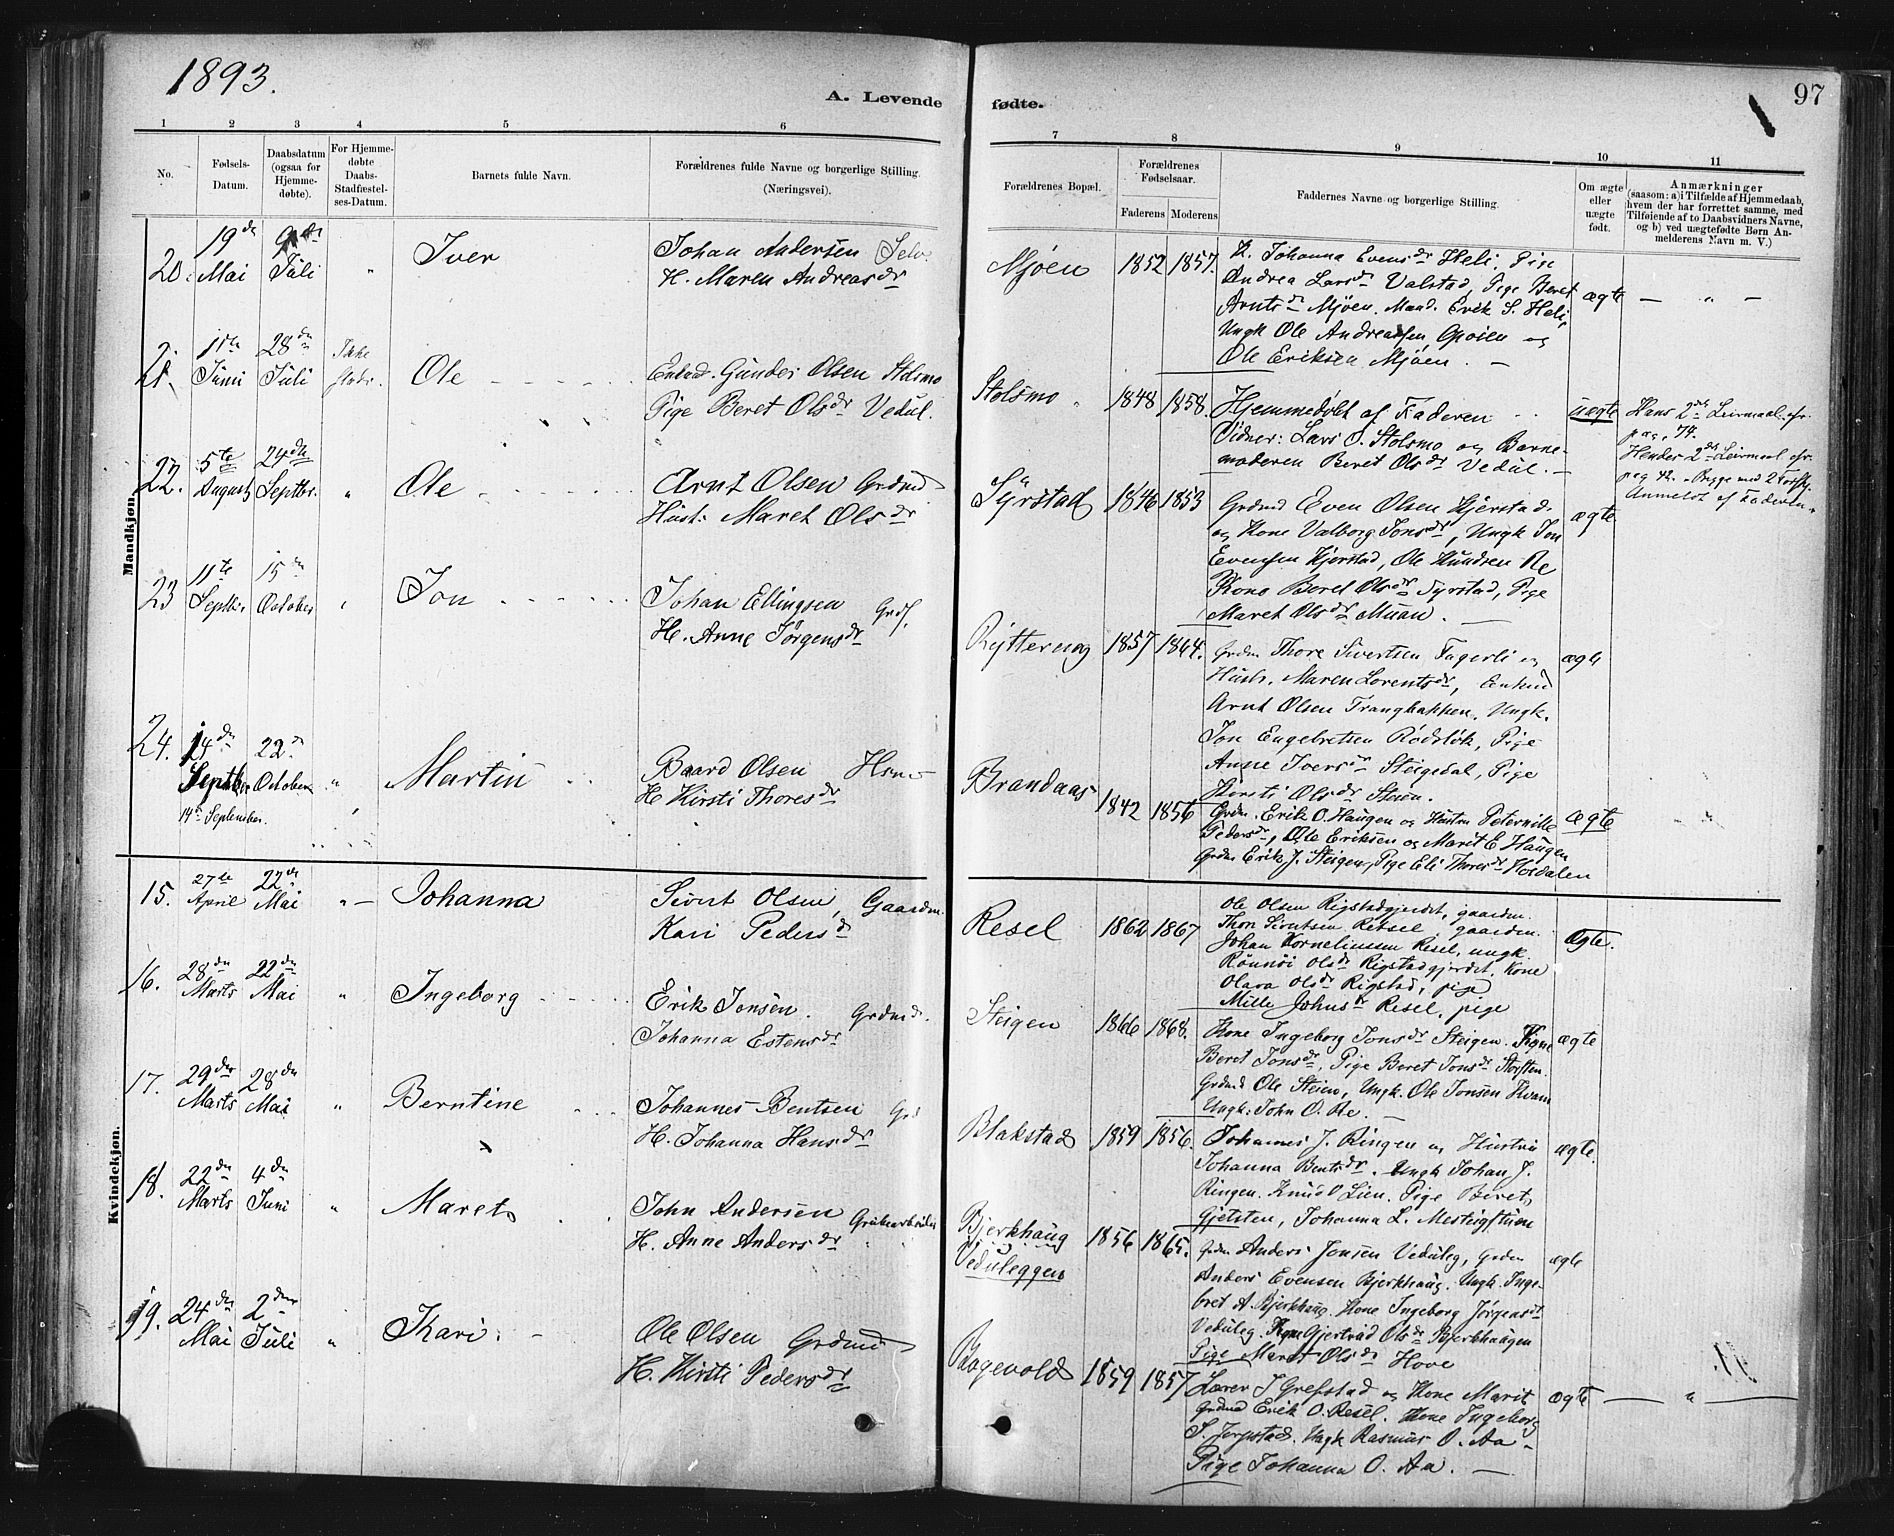 1893.
97
A. Levende
fødte.
1 2 3 4 5 6 7 8 9 10 11
No.
Fødsels-
Datum.
Daabsdatum
(ogsaa for
Hjemme-
døbte).
For Hjemme-
døbte
Daabs-
Stadfæstel-
ses-Datum.
Barnets fulde Navn.
Forældrenes fulde Navne og borgerlige Stilling.
(Næringsvei).
Forældrenes Bopæl.
Forældrenes
Fødselsaar.
Faderens
Moderens
Faddernes Navne og borgerlige Stilling.
Om ægte
eller
uægte
født.
Anmærkninger
(saasom: a) i Tilfælde af Hjemmedaab,
hvem der har forrettet samme, med
Tilføiende af to Daabsvidners Navne,
og b) ved uægtefødte Børn An-
melderens Navn m. V.)
Mandkjøn.
20. 19de Mai
Juli
"
Iver
Johan Andersen
H. Maren Andreasdr
Mjøen
1852 1857.
K. Johanna Evensdr Heli. Pige
Andrea Larsdr Valstad, Pige Beret
Arntsdr Mjøen. Mand. Erik S. Heli,
Ungk Ole Andreassen og
Ole Eriksen Mjøen.
ægte
— " —
21. 11te Juni
28de Juli
Ikke
Ole
Gunder Olsen Stolsmo
Pige Beret Olsdr Vedul.
Stolsmo
1848 1858.
Hjemmedøbt af Faderen
Vidner: Lars O. Stolsmo og Barne-
moderen Beret Olsdr Vedul.
uægte
Hans 2det Leirmaal cfr.
pag. 74.
Hendes 2det Leirmaal cfr.
pag 42. Begge med 2
Anmeldt af Faderen
22. 5te August
24de Septbr.
"
Ole
Arnt Olsen Grdmd
Hust: Maret Olsdr
Syrstad
1846 1853
Grdmd Even Olsen Hjerstad
og Kone Valborg Jonsdr, Ungk Jon
Evensen Hjerstad, Ole Re
Kone Beret Olsdr Syrstad, Pige
Maret Olsdr Muan.
ægte
23 11te Septbr.
15de October
"
Jon
Johan Ellingsen Grdf.
H. Anne Jørgensdr
Rytterhaug
1857 1864.
Grdm Thore Sivertsen Fagerli og
Hustr. Maren Lorentsdr, Enkmd
Arnt Olsen Trangbakken. Ungk.
Jon Engebretsen Rødsløk, Pige
Anne Iversdr Steigedal, Pige
Kirsti Olsdr Steien.
ægte
24. 14de Septbr
14de September.
22de October
"
Martin
Baard Olsen Hsm
H Kirsti Thoresdr
Brandaas
1842 1856
Grdm. Erik O. Haugen og Hustru Peternille
Pedersdr, Ole Eriksen og Marit E Haugen
Grdm Erik J. Steigen, Pige Eli Thoresdr Hosdalen
ægte
Kvindekjøn.
15. 27te April
22de Mai
"
Johanna
Sivert Olsen, Gaardm.
Kari Pedersdr
Resel
1862 1867
Ole Olsen Rigstadgjerdet, gaardm.
Thor Sivertsen Retsel, gaardm.
Johan Korneliussen Resel, ungk
Rønnøi Olsdr Rigstadgjerdet. Kone
Olava Olsdr Rigstad, pige
Mille Johnsdr Resel, pige
Ægte.
16. 28de Marts
22de Mai
"
Ingeborg
Erik Jonsen. Grdmd.
Johanna Estensdr
Steigen
1866 1868.
Kone Ingeborg Jonsdr Steigen. Kone
Beret Jonsdr, Pige Beret Jonsdr Storsten.
Grdmd Ole Steien, Ungk. Ole Jonsen Kvam
Ungk: John O. Re.
ægte
17. 29de Marts
28de Mai
"
Berntine
Johannes Bentsen Grd
H. Johanna Hansdr
Blakstad
1859 1856.
Johannes J. Ringen og Hustru
Johanna Bentsdr. Ungk Johan J.
Ringen. Knud Lien. Pige Beret
Gjetsten, Johanna L.
ægte.
18. 22de Marts
4de Juni
"
Maret
John Andersen Grubearbeider
H. Anne Andersdr
Bjerkhaug
Veduleggen
1856 1865.
Grdm Anders Jonsen Veduleg, Grdm
Anders Evensen Bjerkhaug. Ungk. Inge-
bret A. Bjerkhaug. Kone Ingeborg Jørgensdr
Veduleg. Kone Gjertrud Olsdr Bjerkhaugen
Pige Maret Olsdr Hove
ægte
19. 24de Mai
2den Juli
"
Kari.
Ole Olsen Grdmd
H. Kirsti Pedersdr
Bagevold
1859 1857
Lærer J Grefstad og Kone Marit
Grdmd Erik O. Resel. Kone Ingeborg
S. Jerpstad. Ungk Rasmus O. Aa
Pige Johanna O. Aa.
ægte
— " —